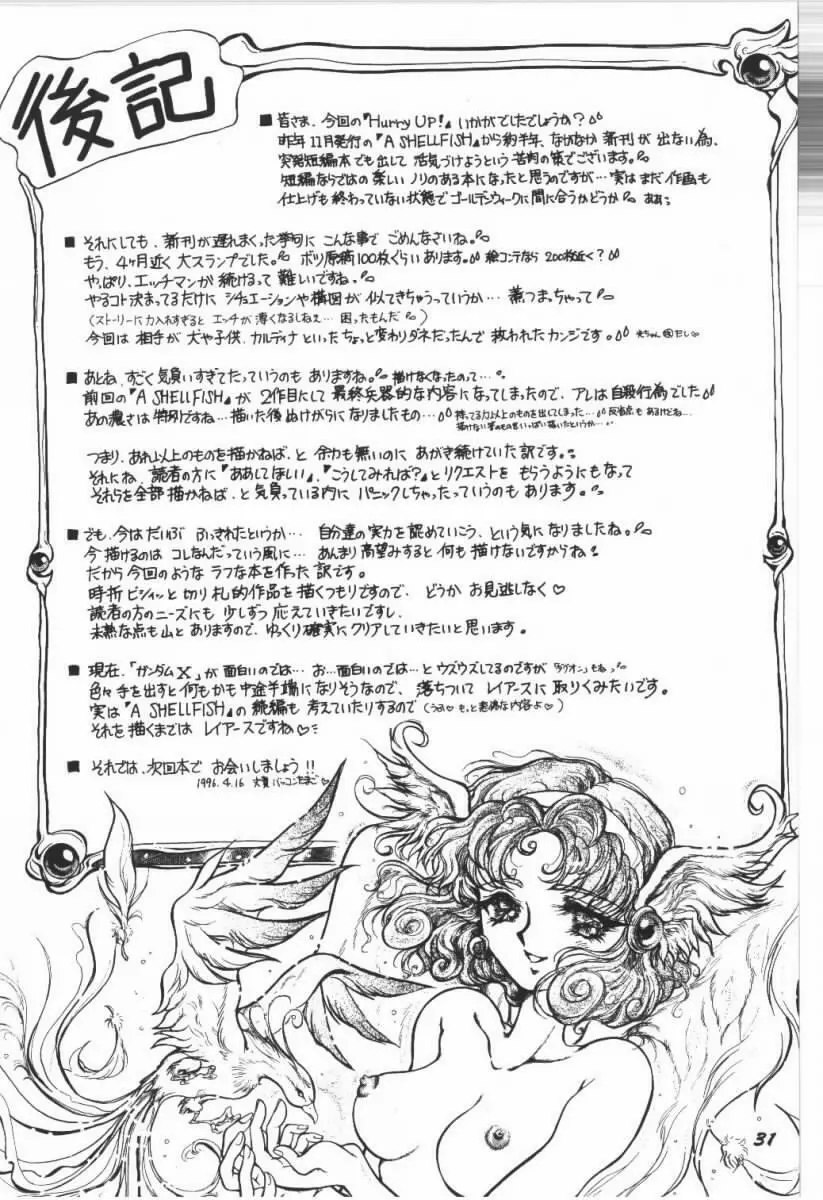 後記
■皆さま、今回の『Hurry UP!』いかがでしたでしょうか?
昨年11月発行の『A SHELLFISH』から約半年、なかなか新刊が出ない為、
突発短編本でも出して活気づけようという苦肉の策でございます。
短編ならではの楽しいノリのある本になったと思うのですが…実はまだ作画も
仕上げも終わっていない状態でゴールデンウィークに間に合うかどうか。ああ
■それにしても、新刊が遅れまくった挙句にこんな事でごめんなさいね。
もう、4ヶ月近く大スランプでした。ボツ原稿100枚ぐらいあります。絵コンテなら200枚近く?
やっぱり、エッチマンガ続けるって難しいですね。
やるコト決まってるだけにシチュエーションや構図が似てきちゃうっていうか…煮つまっちゃって
(ストーリーに力入れすぎるとエッチが薄くなるしねェ…困ったもんだ)
今回は相手が犬や子供、カルディナといったちょっと変わりダネだったんで救われたカンジです。
■あとね、すごく気負いすぎてたっていうのもありますね。描けなくなったのって…
前回の『A SHELLFISH』が2作目にして最終兵器的な内容になってしまったので、アレは自殺行為でした
あの濃さは特別ですね…描いた後ぬけがらになりましたもの…持ってる力以上のものを出してしまった…反省点もあるけどね…
つまり、あれ以上のものを描かねば、と余力も無いのにあがき続けていた訳です。
それにね、読者の方に『ああしてほしい』、『こうしてみれば?』とリクエストをもらうようにもなって
それらを全部描かねば、と気負っている内にパニックしちゃったっていうのもあります。
■でも、今はだいぶふっきれたというか…自分達の実力を認めていこう、という気になりましたね。
今描けるのはコレなんだっていう風に…あんまり高望みすると何も描けないですからね
だから今回のようなラフな本を作った訳です。
時折ビシィッと切り札的作品を描くつもりですので、どうかお見逃しなく♡
読者の方のニーズにも少しずつ応えていきたいですし、
未熟な点も山とありますので、ゆっくり確実にクリアしていきたいと思います。
■現在、「ガンダムX」が面白いのでは…お…面白いのでは…とウズウズしてるのですが
色々手を出すと何もかも中途半端になりそうなので、落ちついてレイアースに取りくみたいです。
実は『A SHELLFISH』の続編も考えていたりするので(うふ♡もっと悪趣な内容よ♡)
それを描くまではレイアースですね♡
■それでは、次回本でお会いしましょう!!
1996.4.16
31